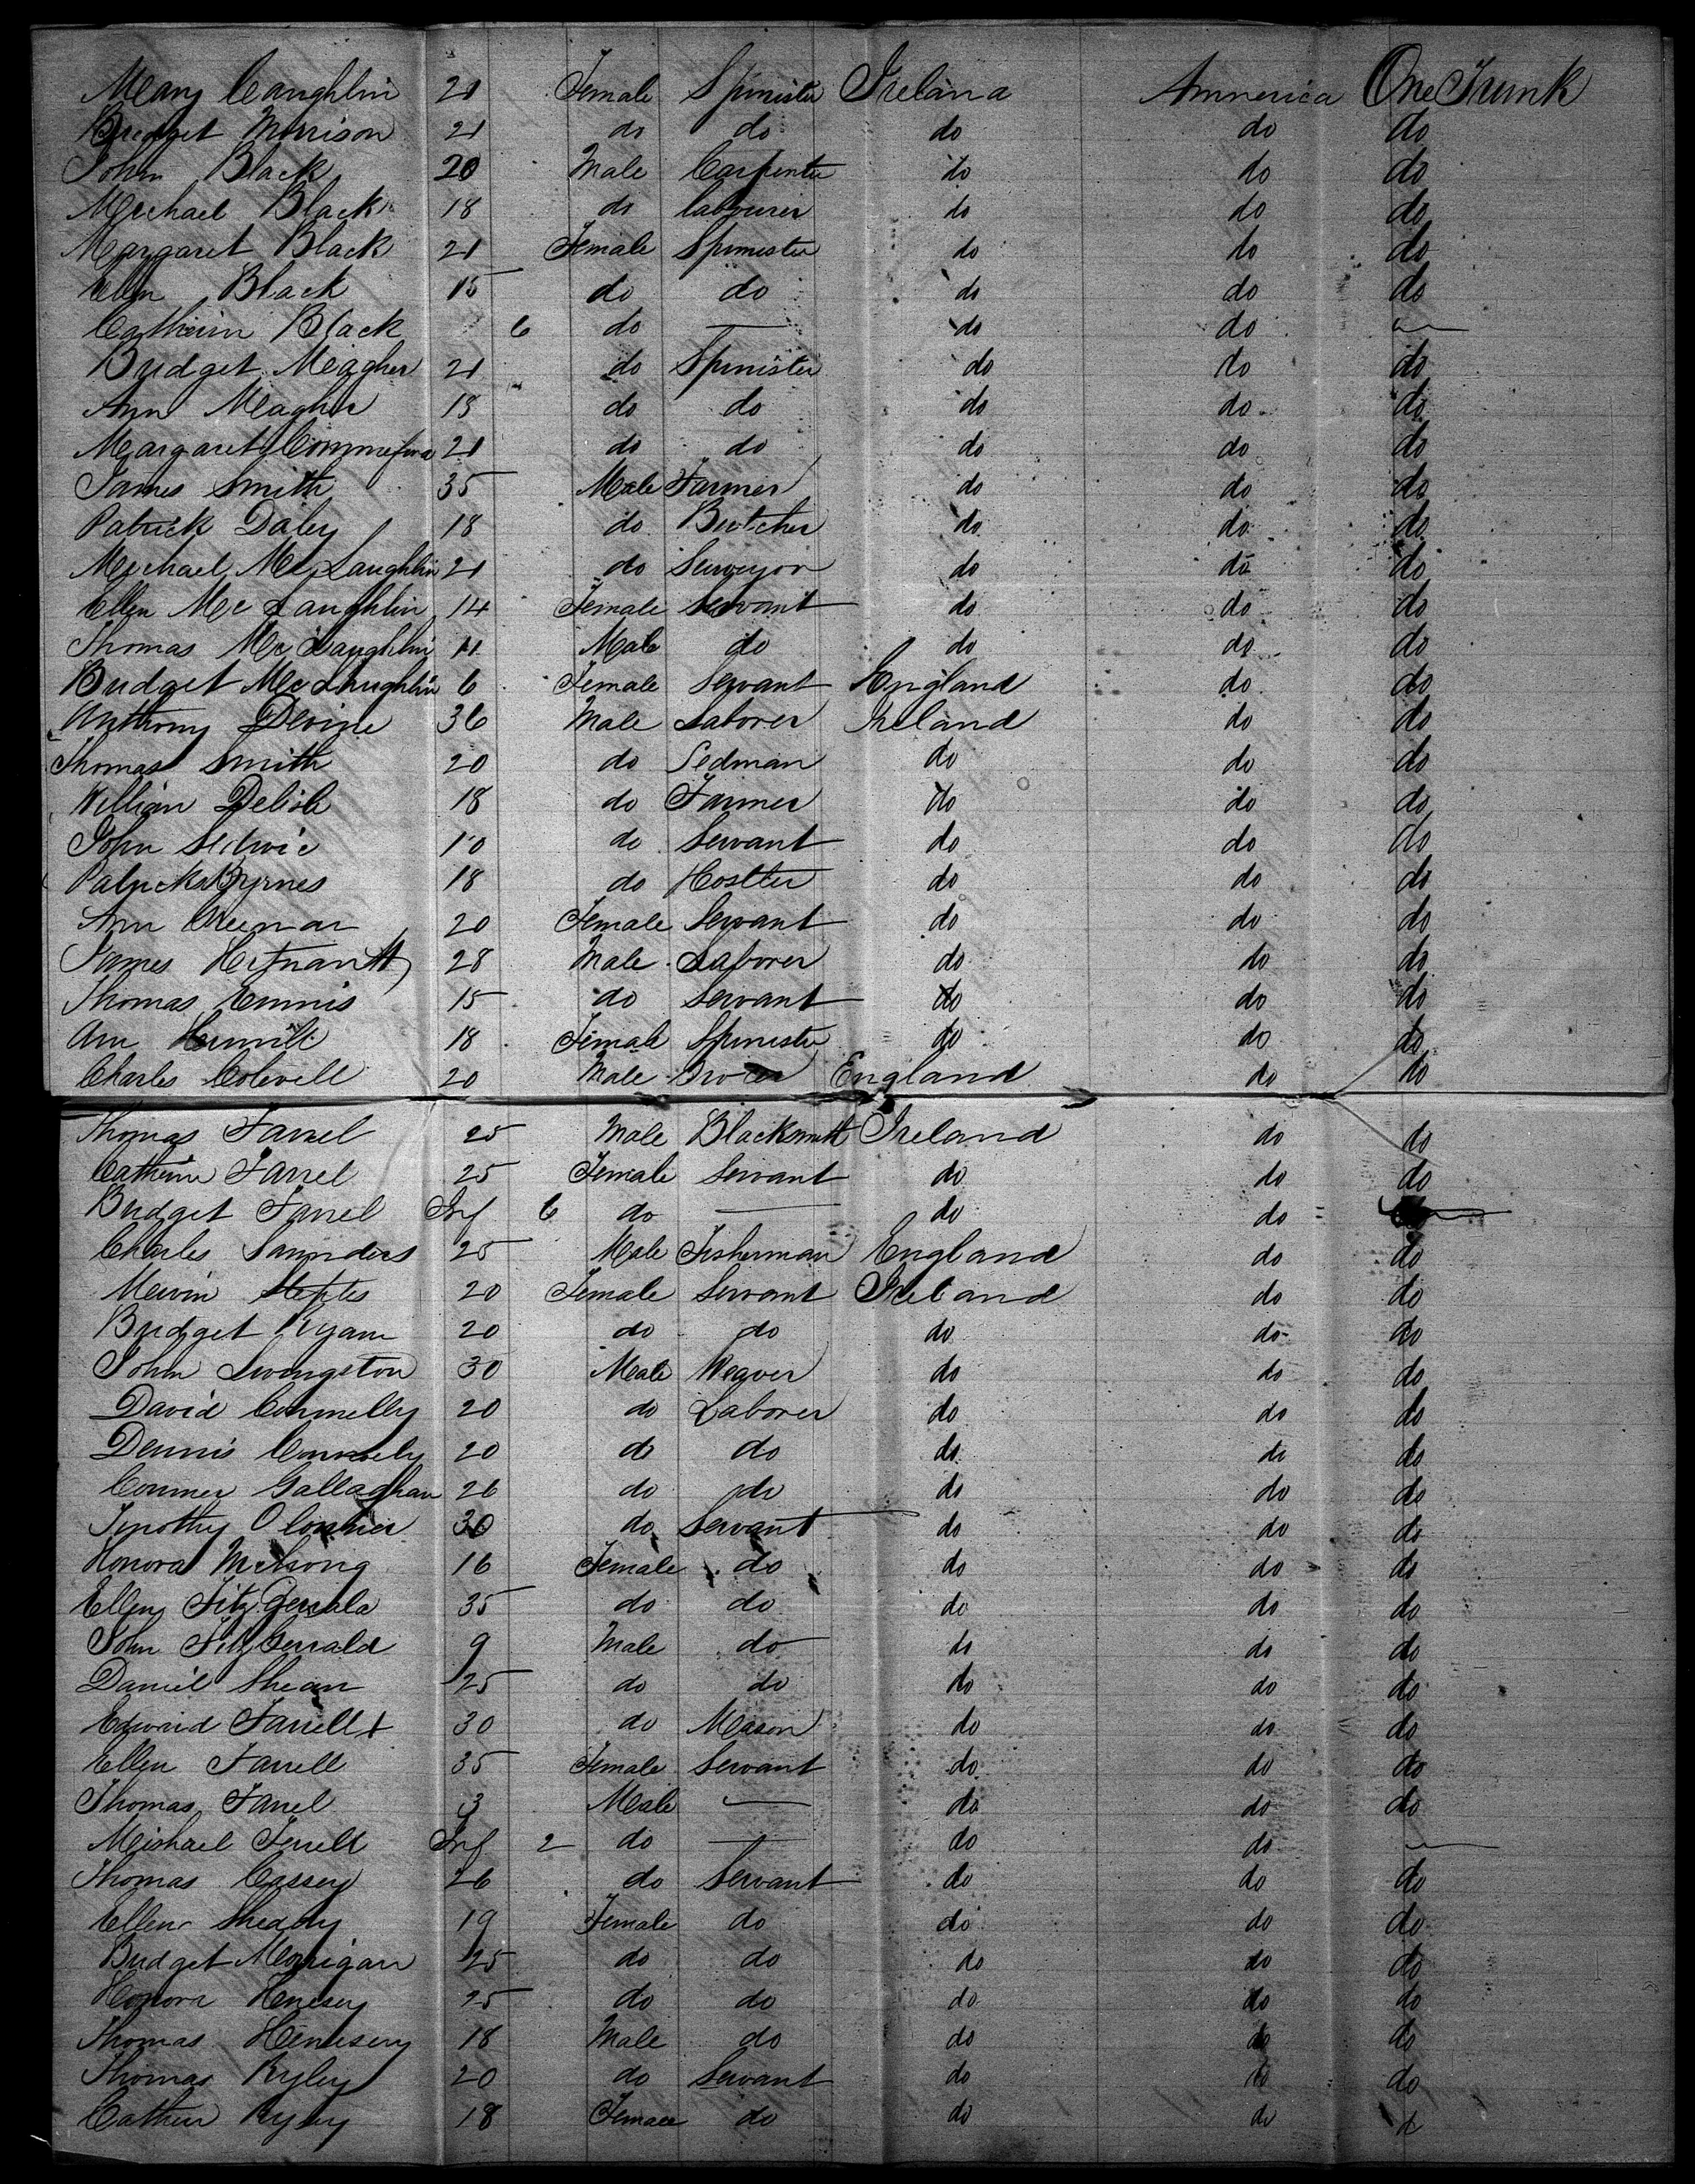 Mary Caughlin 21 Female Spinister Ireland Amnerica One Trunk
Bredget Morrison 21 do do do do do
John Black 20 Male Carpenter do do do
Michael Black 18 do labourer do do do
Margaret Black 21 Female Spinister do do do
Ellen Black 15 do do do do do
Catherin Black 6 do — do do —
Bridget Meagher 21 do Spinister do do do
Ann Meagher 18 do do do do do
Margaret 21 do do do do do
James Smith 35 Male Farmer do do do
Patrick Daley 18 do Butcher do do do
Michael Mc Laughlin 21 do Surveyor do do do
Ellen Mc Laughlin 14 Female Servant do do do
Thomas Mc Laughlin 11 Male do do do do
Bridget Mc Laughlin 6 Female Servant England do do
Anthony Devine 36 Male Laborer Ireland do do
Thomas Smith 20 do Sedman do do do
William Delisle 18 do Farmer do do do
John Sedwic 10 do Servant do do do
Patrick Byrnes 18 do Hostler do do do
Ann 20 Female Servant do do do
James 28 Male Laborer do do do
Thomas Ennis 15 do Servant do do do
Ann 18 Female Spinister do do do
Charles Colevell 20 Male Grocer England do do
Thomas Farrel 25 Male Blacksmith Ireland do do
Catherin Farrel 25 Female Servant do do do
Bridget Farrel Inf 6 do — do do
Charles Saunders 25 Male Fisherman England do do
20 Female Servant Ireland do do
Bridget Ryan 20 do do do do do
John Livingston 30 Male Weaver do do do
David Connelly 20 do Laborer do do do
Dennis Connely 20 do do do do do
Conner Gallaghan 26 do do do do do
Timothy O Conner 30 do Servant do do do
Honora 16 Female do do do do
Ellen Fitz Gerrald 35 do do do do do
John Fitz Gerrald 9 Male do do do do
Daniel Shean 25 do do do do do
Edward Farrell 30 do Mason do do do
Ellen Farrell 35 Female Servant do do do
Thomas Farrel 3 Male — do do do
Michael Ferrell Inf 2 do — do do —
Thomas Cassey 26 do Servant do do do
Ellen Sheddy 19 Female do do do do
Bridget Merrigan 25 do do do do do
Honora Henesey 25 do do do do do
Thomas Hennesery 18 Male do do do do
Thomas Ryley 20 do Servant do do do
Catherin Ryley 18 Female do do do d